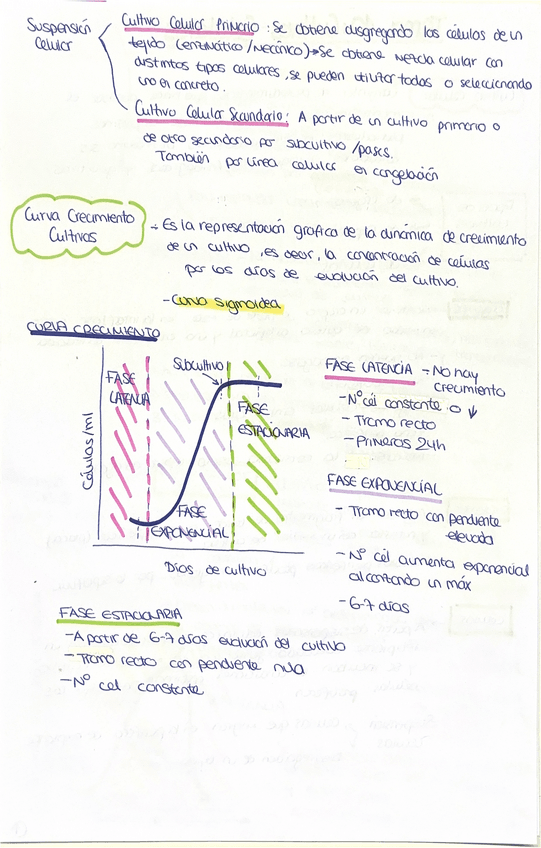 Suspensión
Celular
Cultivo Celular Primario: Se obtiene disgregando las células de un
tejido (enzimático/mecánico)→Se obtiene mezcla celular con
distintos tipos celulares, se pueden utilizar todas o seleccionando
uno en concreto.
Cultivo Celular Secundario: A partir de un cultivo primario o
de otro secundario por subcultivo/pases.
También por línea celular en congelación
Curva Crecimiento
Cultivos
- Es la representación grafica de la dinámica de crecimiento
de un cultivo, es decir, la concentración de células
por los días de evolución del cultivo.
- Curva sigmoidea
CURVA CRECIMIENTO
Células/ml
FASE
LATENCIA
Subcultivo
FASE
ESTACIONARIA
FASE
EXPONENCIAL
Días de cultivo
FASE LATENCIA - No hay
crecimiento
- Nº cél constante o ↓
- Tramo recto
- Primeras 24h
FASE EXPONENCIAL
- Tramo recto con pendiente
elevada
- Nº cél aumenta exponencial
alcanzando un máx
- 6-7 días
FASE ESTACIONARIA
- A partir de 6-7 días evolución del cultivo
- Tramo recto con pendiente nula
- Nº cel constante